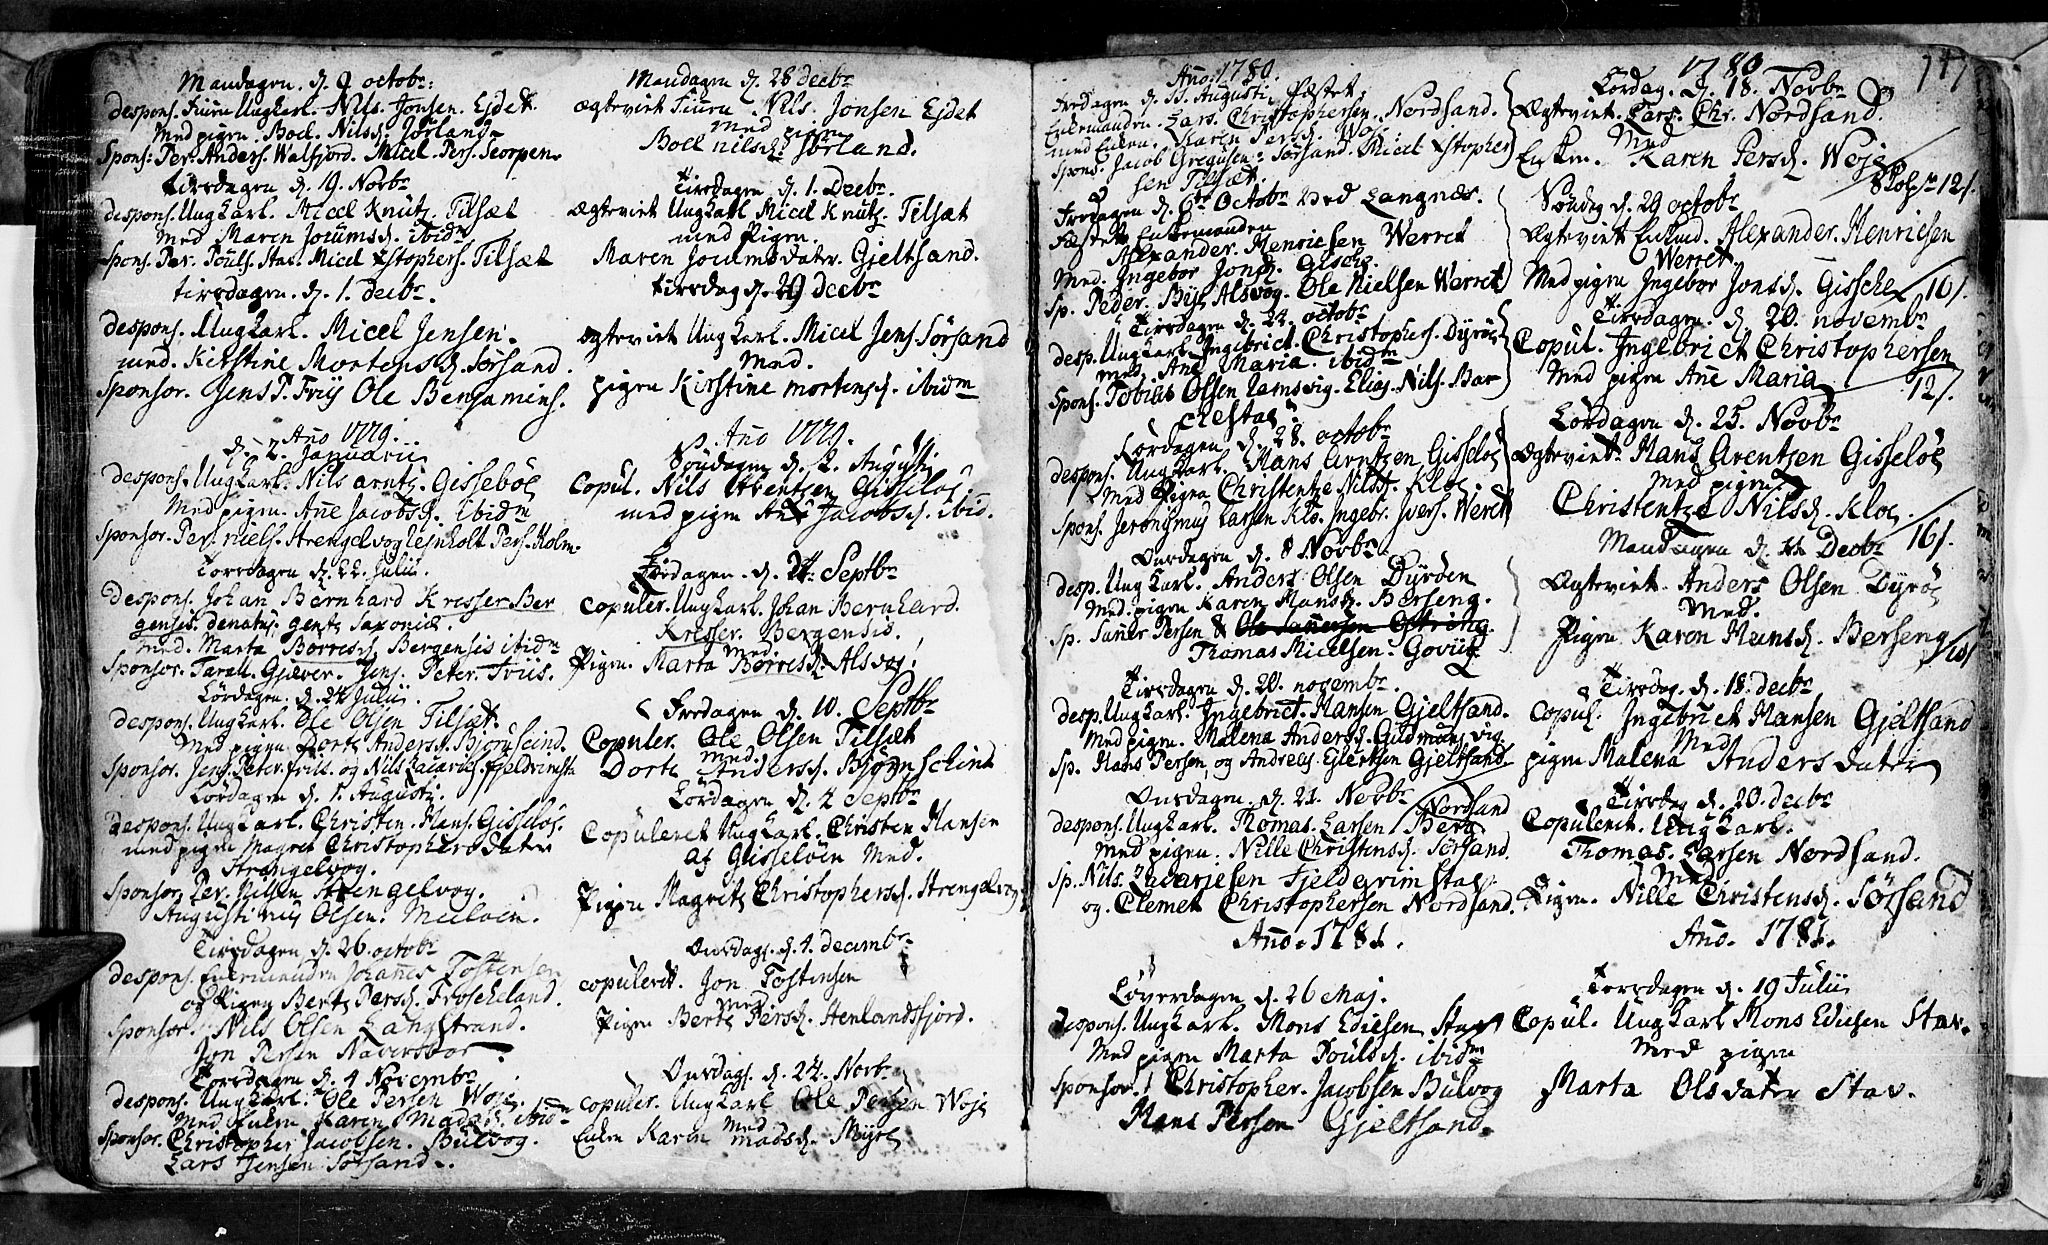 Mandagen. d. 9 octobr:
despons. Finn Ungkarl. Nils. Jonsen. Ejdet.
Med pigen. Boel. Nilsd. Sørland
Spons: Per. Anders. Walfjord. Micel. Pers. Scorpen.
tirsdagen d. 19. Novbr
despons. Ungkarl. Micel Knutz. Tilsæt
med Maren Joumsd. ibidm
Spons. Per. Pouls. Stav. Micel Xstophers. Tilsæt
tirsdagen. d. 1. decbr.
despons. Ungkarl. Micel Jensen.
med. Kirstine Mortensd. Sørsand.
sponsor. Jens P. Friis Ole Benjamins.
Ano 1779.
d. 2. Januarii
despons. Ungkarl. Nils arntz. Gisseløe
Med pigen. Ane Jacobsd. ibidm
sponsor. Per. niels. Strengelvog Lejnholt Pers. Holm.
Torsdagen d. 22. Julii.
despons. Johan Bernhard Kresser Ber
gensis. denatus. gente Saxonia.
med. Marta Borresd. Bergensis ibidm
Sponsor. Tarall. Gjæver. Jens Peter. Friis.
Lørdagen. d. 24 Julii.
despons. Ungkarl. Ole Olsen Tilsæt.
Med pigen Dorte Andersd. Bjørnskind.
sponsor. Jens Peter. friis. og Nils Zacaries. Fjeldvimsta
Lørdagen d. 1. Augusti.
despons. Ungkarl. Christen. Hans. Gisseløe.
med pigen Magret Christophersdater
Strengelvog.
Sponsor. Per. Nilsen Strengelvog.
Augustinus Olsen. Meeløen.
Tirsdagen d. 26. octobr
despons. Enkemanden Johanes Tostensen
og Pigen Berte Persd. Froskeland.
sponsor. Nils Olsen Langstrand.
Jon Persen Naverstar
Torsdagen d. 4 Novembr
despons. Ungkarl. Ole Persen Woje.
Med Enken Karen Madsd. ibidm
Sponsor. Christopher Jacobsen. Bulvog.
Lars Jensen Sørsand.
Mandagen d. 28 decbr
ægtevict Finn Nils. Jonsen Ejdet
med pigen
Boel nilsd. Sørland.
Tirsdagen d. 1. Decbr.
ægtevict Ungkarl Micel Knutz. Tilsæt
med Pigen.
Maren Joumsdater. Gjeltsand.
tirsdag d. 29 decbr
ægtevict Ungkarl. Micel Jens. Sørsand
Med.
pigen Kirstine mortensd. ibidm
Ano 1779.
Søndagen d. 2. Augusti
Copul. Nils Arentzen Gisseløe
med pigen Ane Jacobsd. ibid.
Fredagen. d. 24. Septbr
Copuler. Ungkarl. Johan Bernhard.
Kresser. Bergensis.
med
Pigen. Marta Børresd. Alsvog.
Fredagen d. 10. Septbr
Copuler. Ole Olsen Tilsæt
med
Dorte Andersd. Bjørnschind
Lørdagen d. 4 Septbr
Copuleret Ungkarl. Christen Hansen
af Gisseløen Med.
Pigen Magrete Christophersd. Strengelvog
Onsdag. d. 1. decembr
copuleret. Jon Tostensen
Med
Pigen Berte Persd. Stenlandsfjord.
Onsdags. d. 24. Novbr
copuler. Ungkarl Ole Persen Woje
Med
Enken Karen madsd. Myre
Ano. 1780.
Fredagen d. 11. Augusti, fæstet
Enkemanden. Lars. Christophersen. Nordsand.
med Enken. Karen Persd. Woje.
Spons. Jacob Gregusen. Sørsand. Micel Xstopher
sen Tilsæt.
Fredagen d. 6te Octobr ved Langnæs.
Fæstet Enkemanden
Alexander. Henriesen Werret
Med. Ingebor Jonsd. Gische.
Sp. Peder. Bye Alsvog. Ole Nielsen Werret
Tirsdagen d. 24. octobr
desp. Ungkarl. Ingebrict. Christophers. Dyrøe
med. Ane Maria. ibidm
Spons. Tobias Olsen Ramsvig. Elias. Nils. Bar
chestad.
Lørdagen d. 28. octobr
despons. Ungkarl. Hans Arntzen Gisseløe
Med Pigen Christentze Nilsd. Kloe.
Spons. Jeronimus Larsen Klo. Ingebr. Ivers. Weret
Onsdagen. d. 8 Novbr.
desp. Ungkarl. Anders Olsen Dyrøen
Med. pigen Karen Hansd. Berseng.
Sp. Saner Persen & Ole Sanersen Gistreng.
Thomas Micelsen. Goviig
Tirsdagen d. 20. novembr.
desp. Ungkarl. Ingebrict. Hansen Gjeltsand.
Med pigen. Malena Andersd. Gudmunsvig.
Sp. Hans Persen, og Andreas Ejlertsen Gjeltsand
Onsdagen. d. 21. Novbr Nordsand
despons. Ungkarl. Thomas. Larsen Berg
Med pigen. Nille Christensd. Sørsand.
Sp. Nils. Zacariesen Fjeldgrimstav.
og. Clemet Christophersen Nordsand.
Ano. 1781.
Løverdagen d. 26 Maj.
despons. Ungkarl. Mons Ediesen Stav
Med pigen Marta Poulsd. ibidm
sponsor. Christopher. Jacobsen Bulvog
Hans Persen Gjeltsand.
1780
147
Lordag. d. 18. Novbr
Ægtevict. Lars. Chr. Nordsand.
Med
Enken. Karen Persd. Woje
8 Pols 12/.
Søndag d. 29 octobr
Ægtevict Enkmd. Alexander. Henriesen
Werret
Med pigen Ingebor Jonsd. Gissche
16/.
Tirsdagen. d. 20. novembr
Copul. Ingebrict Christophersen
Med pigen Ane Maria
12/.
Lørdagen d. 25. Novbr
Ægtevict. Hans Arentzen Gisseløe
Med pigen
Christentze Nilsd. Kloe.
16/.
Mandagen d. 11 Decbr
Ægtevict. Anders Olsen Dyrøe
Med.
Pigen Karen Hansd. Berseng
Tirsdag. d. 18. decbr
Copul. Ingebrict Hansen Gjeltsand
Med
pigen Malena Andersdater
Tirsdag d. 20. decbr
Copuleret. Ungkarl.
Thomas. Larsen Nordsand.
Med
Pigen. Nille Christensd. Sørsand
Ano. 1781.
Torsdagen d. 19 Julii
Copul. Ungkarl Mons Ediesen Stav.
Med pigen
Marta Olsdater Stav.